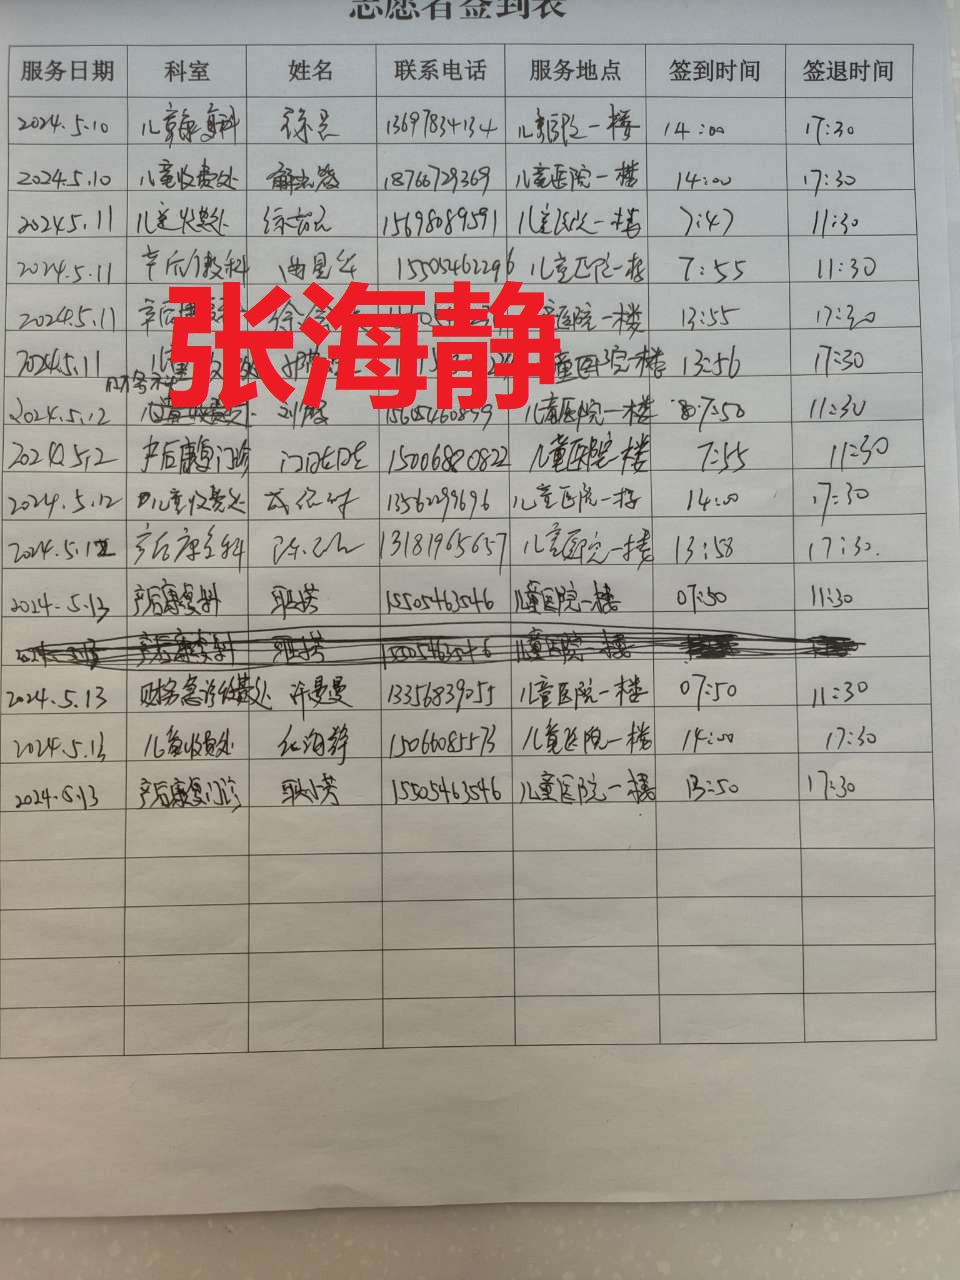 志愿者签到表
服务日期 科室 姓名 联系电话 服务地点 签到时间 签退时间
2024.5.10 儿童康复科 徐 13697834134 儿童医院一楼 14:00 17:30
2024.5.10 儿童收费处 解 18766729369 儿童医院一楼 14:00 17:30
2024.5.11 儿童收费处 徐 15698089591 儿童医院一楼 7:47 11:30
2024.5.11 产后 科 15505462296 儿童医院一楼 7:55 11:30
2024.5.11 产后 徐 医院一楼 13:55 17:30
张海静
2024.5.11 童医院一楼 13:56 17:30
财务科
2024.5.12 儿童收费处 刘 儿童医院一楼 7:50 11:30
2024.5.12 产后康复门诊 15006820822 儿童医院一楼 7:55 11:30
2024.5.12 儿童收费处 13562099696 儿童医院一楼 14:00 17:30
2024.5.12 产后康复科 陈 13181965657 儿童医院一楼 13:58 17:30.
2024.5.13 产后康复科 耿 芳 15505463546 儿童医院一楼 07:50 11:30
2024.5.13 财务急诊收费处 许曼曼 13356839055 儿童医院一楼 07:50 11:30
2024.5.13 儿童收费处 海静 15066085573 儿童医院一楼 14:00 17:30
2024.5.13 产后康复门诊 耿小芳 15505463546 儿童医院一楼 13:50 17:30